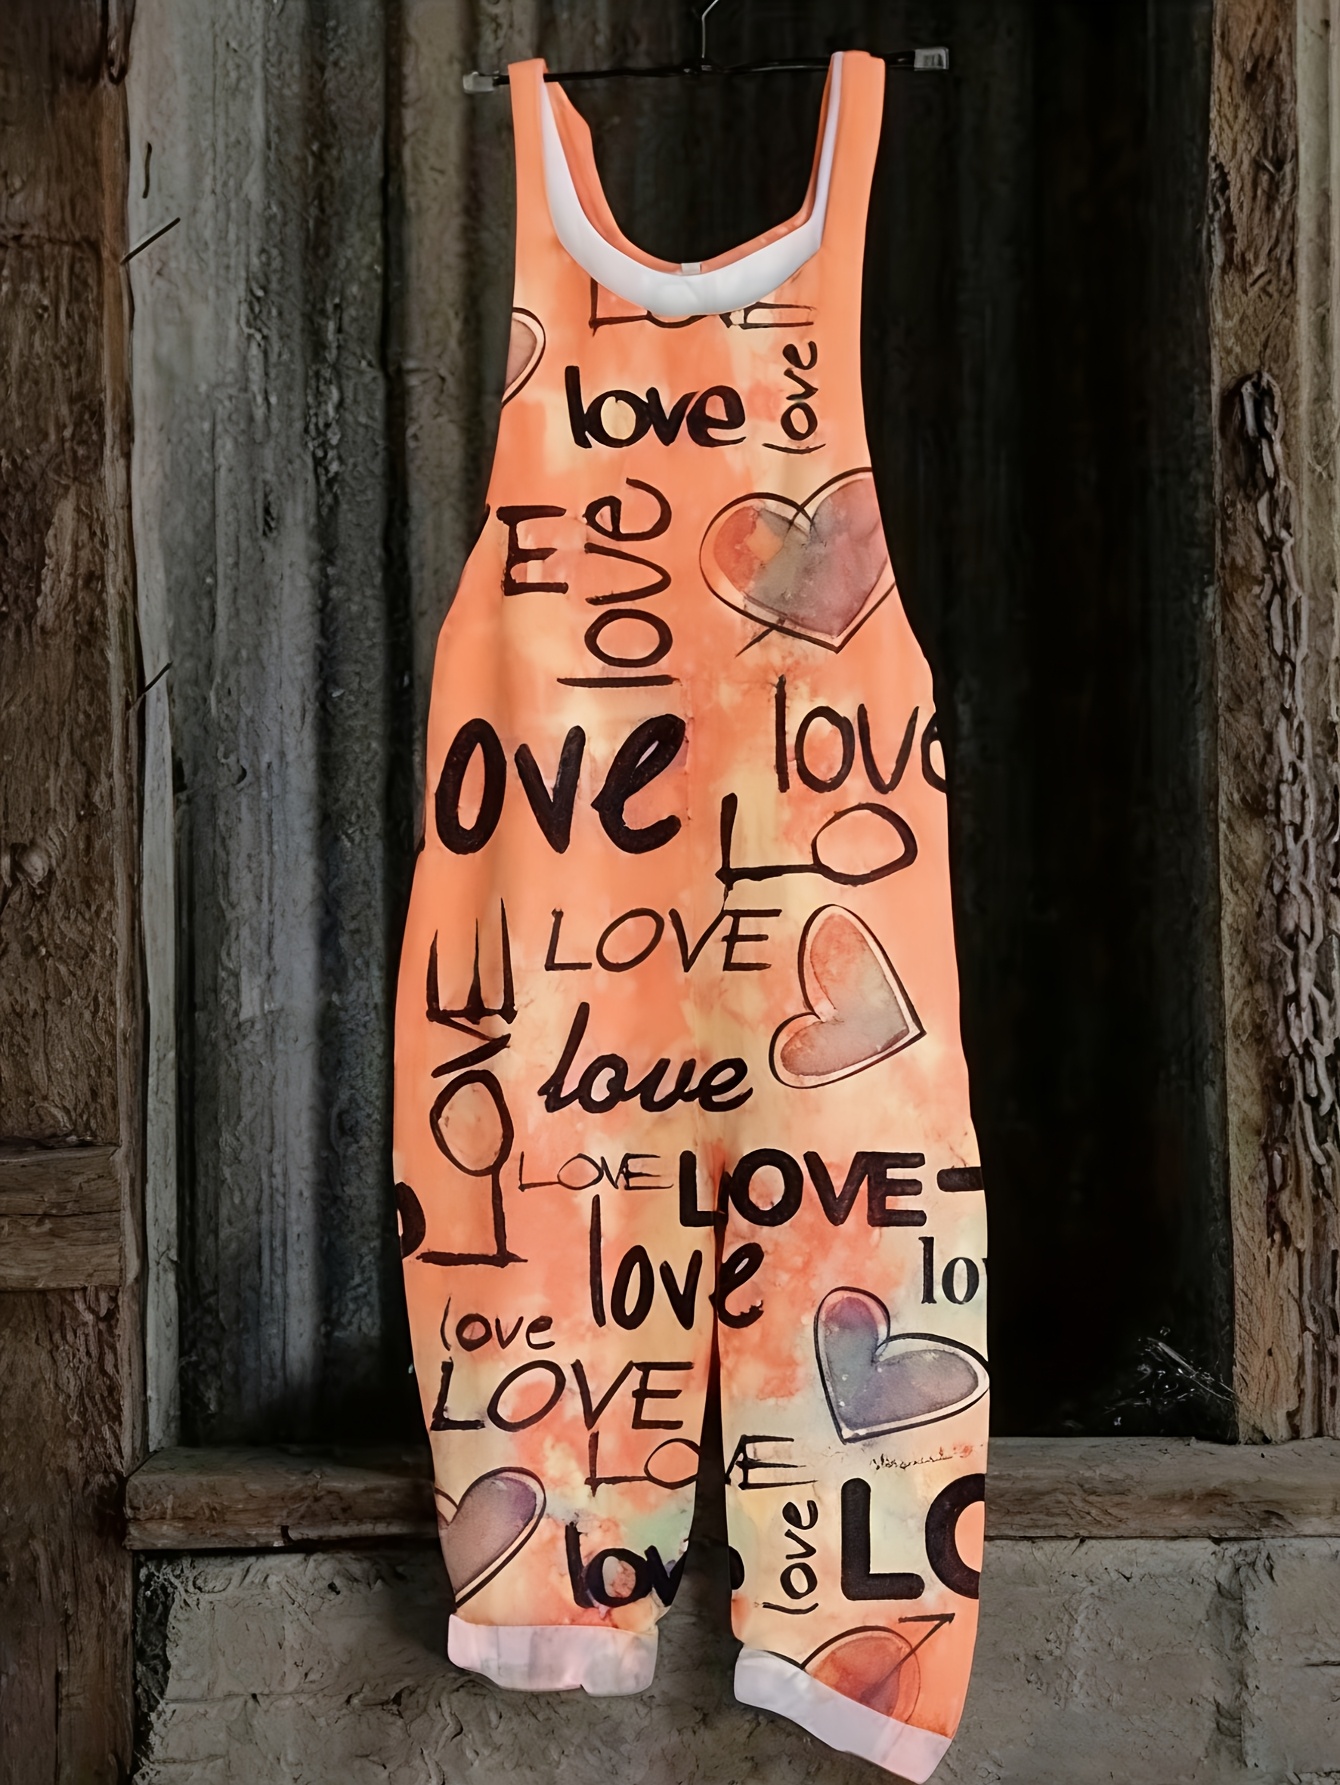 love
love
E
love
ove
love
LO
LOVE
LOVE
love
LOVE
LOVE
lov
love
love
LOVE
LOVE
love
LO
lov